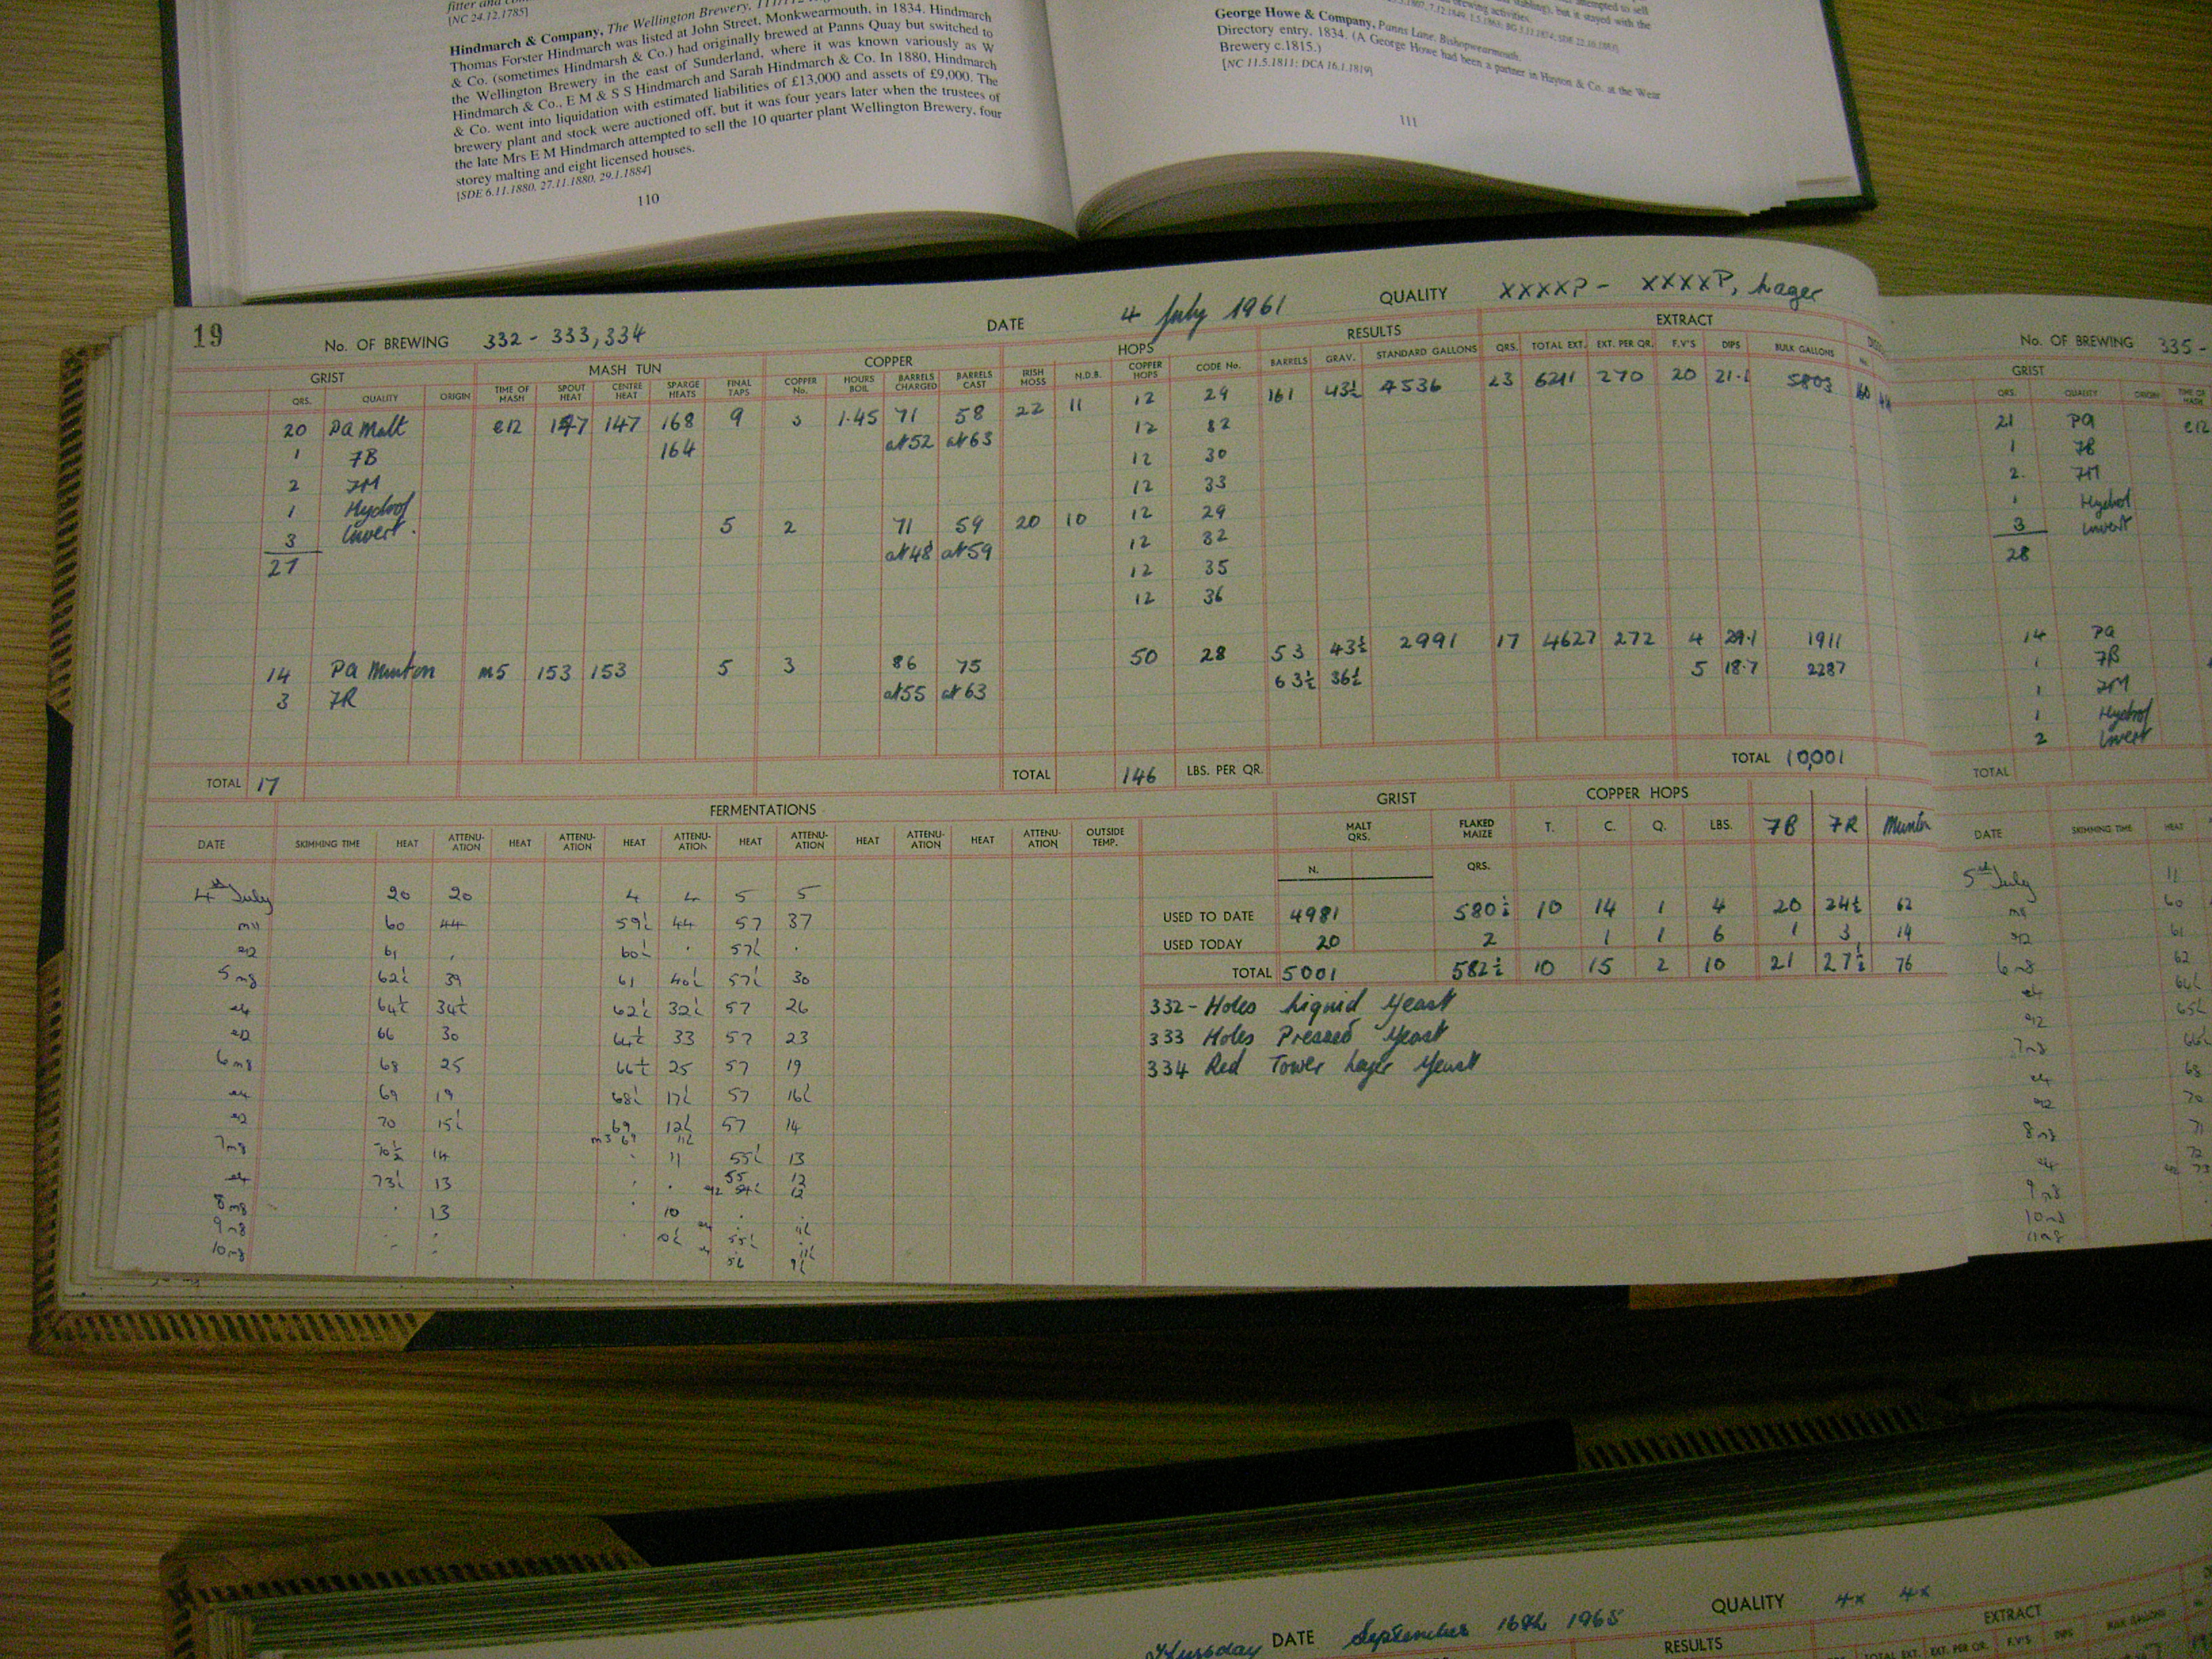 [NC 24.12.1785]
Hindmarch & Company, The Wellington Brewery,
Thomas Forster Hindmarch was listed at John Street, Monkwearmouth, in 1834. Hindmarch
& Co. (sometimes Hindmarsh & Co.) had originally brewed at Panns Quay but switched to
the Wellington Brewery in the east of Sunderland, where it was known variously as W
Hindmarch & Co., E M & S S Hindmarch and Sarah Hindmarch & Co. In 1880, Hindmarch
& Co. went into liquidation with estimated liabilities of £13,000 and assets of £9,000. The
brewery plant and stock were auctioned off, but it was four years later when the trustees of
the late Mrs E M Hindmarch attempted to sell the 10 quarter plant Wellington Brewery, four
storey malting and eight licensed houses.
[SDE 6.11.1880, 27.11.1880, 29.1.1884]
110
but it stayed with the
George Howe & Company, Panns Lane, Bishopwearmouth.
Directory entry, 1834. (A George Howe had been a partner in Hayton & Co. at the Wear
Brewery c.1815.)
[NC 11.5.1811; DCA 16.1.1819]
111
19 No. OF BREWING 332 - 333, 334 DATE 4 July 1961 QUALITY XXXXP - XXXXP, Lager
GRIST MASH TUN COPPER HOPS RESULTS EXTRACT
QRS. QUALITY ORIGIN TIME OF MASH SPOUT HEAT CENTRE HEAT SPARGE HEATS FINAL TAPS COPPER No. HOURS BOIL BARRELS CHARGED BARRELS CAST IRISH MOSS N.D.B. COPPER HOPS CODE No. BARRELS GRAV. STANDARD GALLONS QRS. TOTAL EXT. EXT. PER QR. F.V'S DIPS BULK GALLONS
20 PA Malt e12 147 147 168 9 3 1.45 71 58 22 11 12 29 161 43½ 7536 23 6211 270 20 21.1 5803
1 7B 164 at 52 at 63 12 32
2 7M 12 30
1 Hydrol 12 33
3 Invert. 5 2 71 59 20 10 12 29
27 at 48 at 59 12 32
12 35
12 36
14 PA Munton m5 153 153 5 3 86 75 50 28 53 43½ 2991 17 4627 272 4 29.1 1911
3 7R at 55 at 63 63½ 36½ 5 18.7 2287
TOTAL 17 TOTAL 146 LBS. PER QR. TOTAL 10,001
FERMENTATIONS
DATE SKIMMING TIME HEAT ATTENU-ATION HEAT ATTENU-ATION HEAT ATTENU-ATION HEAT ATTENU-ATION HEAT ATTENU-ATION HEAT ATTENU-ATION OUTSIDE TEMP.
4th July 20 20 4 4 5 5
m11 60 44 59½ 44 57 37
e12 61 , 60½ . 57½ .
5 m8 62½ 39 61 40½ 57½ 30
e4 64½ 34½ 62½ 32½ 57 26
e12 66 30 64½ 33 57 23
6 m8 68 25 66½ 25 57 19
e4 69 19 68½ 17½ 57 16½
e12 70 15½ 69 12½ 57 14
m3 69 11½
7 m8 70½ 14 11 55½ 13
e4 73½ 13 55 12
e12 54½ 12
8 m8 13 10
9 m8 55½
10 m8
GRIST COPPER HOPS
MALT QRS. FLAKED MAIZE T. C. Q. LBS. 7B 7R Munton
N. QRS.
USED TO DATE 4981 580½ 10 14 1 4 20 24½ 62
USED TODAY 20 2 1 1 6 1 3 14
TOTAL 5001 582½ 10 15 2 10 21 27½ 76
332 - Holes Liquid Yeast
333 Holes Pressed Yeast
334 Red Tower Lager Yeast
No. OF BREWING 335 -
GRIST
QRS. QUALITY ORIGIN
21 PA e12
1 7B
2 7M
1 Hydrol
3 Invert
28
14 PA
1 7B
1 7M
1 Hydrol
2 Invert
TOTAL
DATE SKIMMING TIME HEAT
5th July 11
m11 60
e12 61
6 m8 62
e4 64½
e12 65½
7 m8 66½
e4 68
e12 70
8 m8 71
e4 72
73
9 m8
10 m8
11 m8
Thursday DATE September 16th 1965 QUALITY 4x 4x
RESULTS EXTRACT
TOTAL EXT. EXT. PER QR. F.V'S DIPS BULK GALLONS